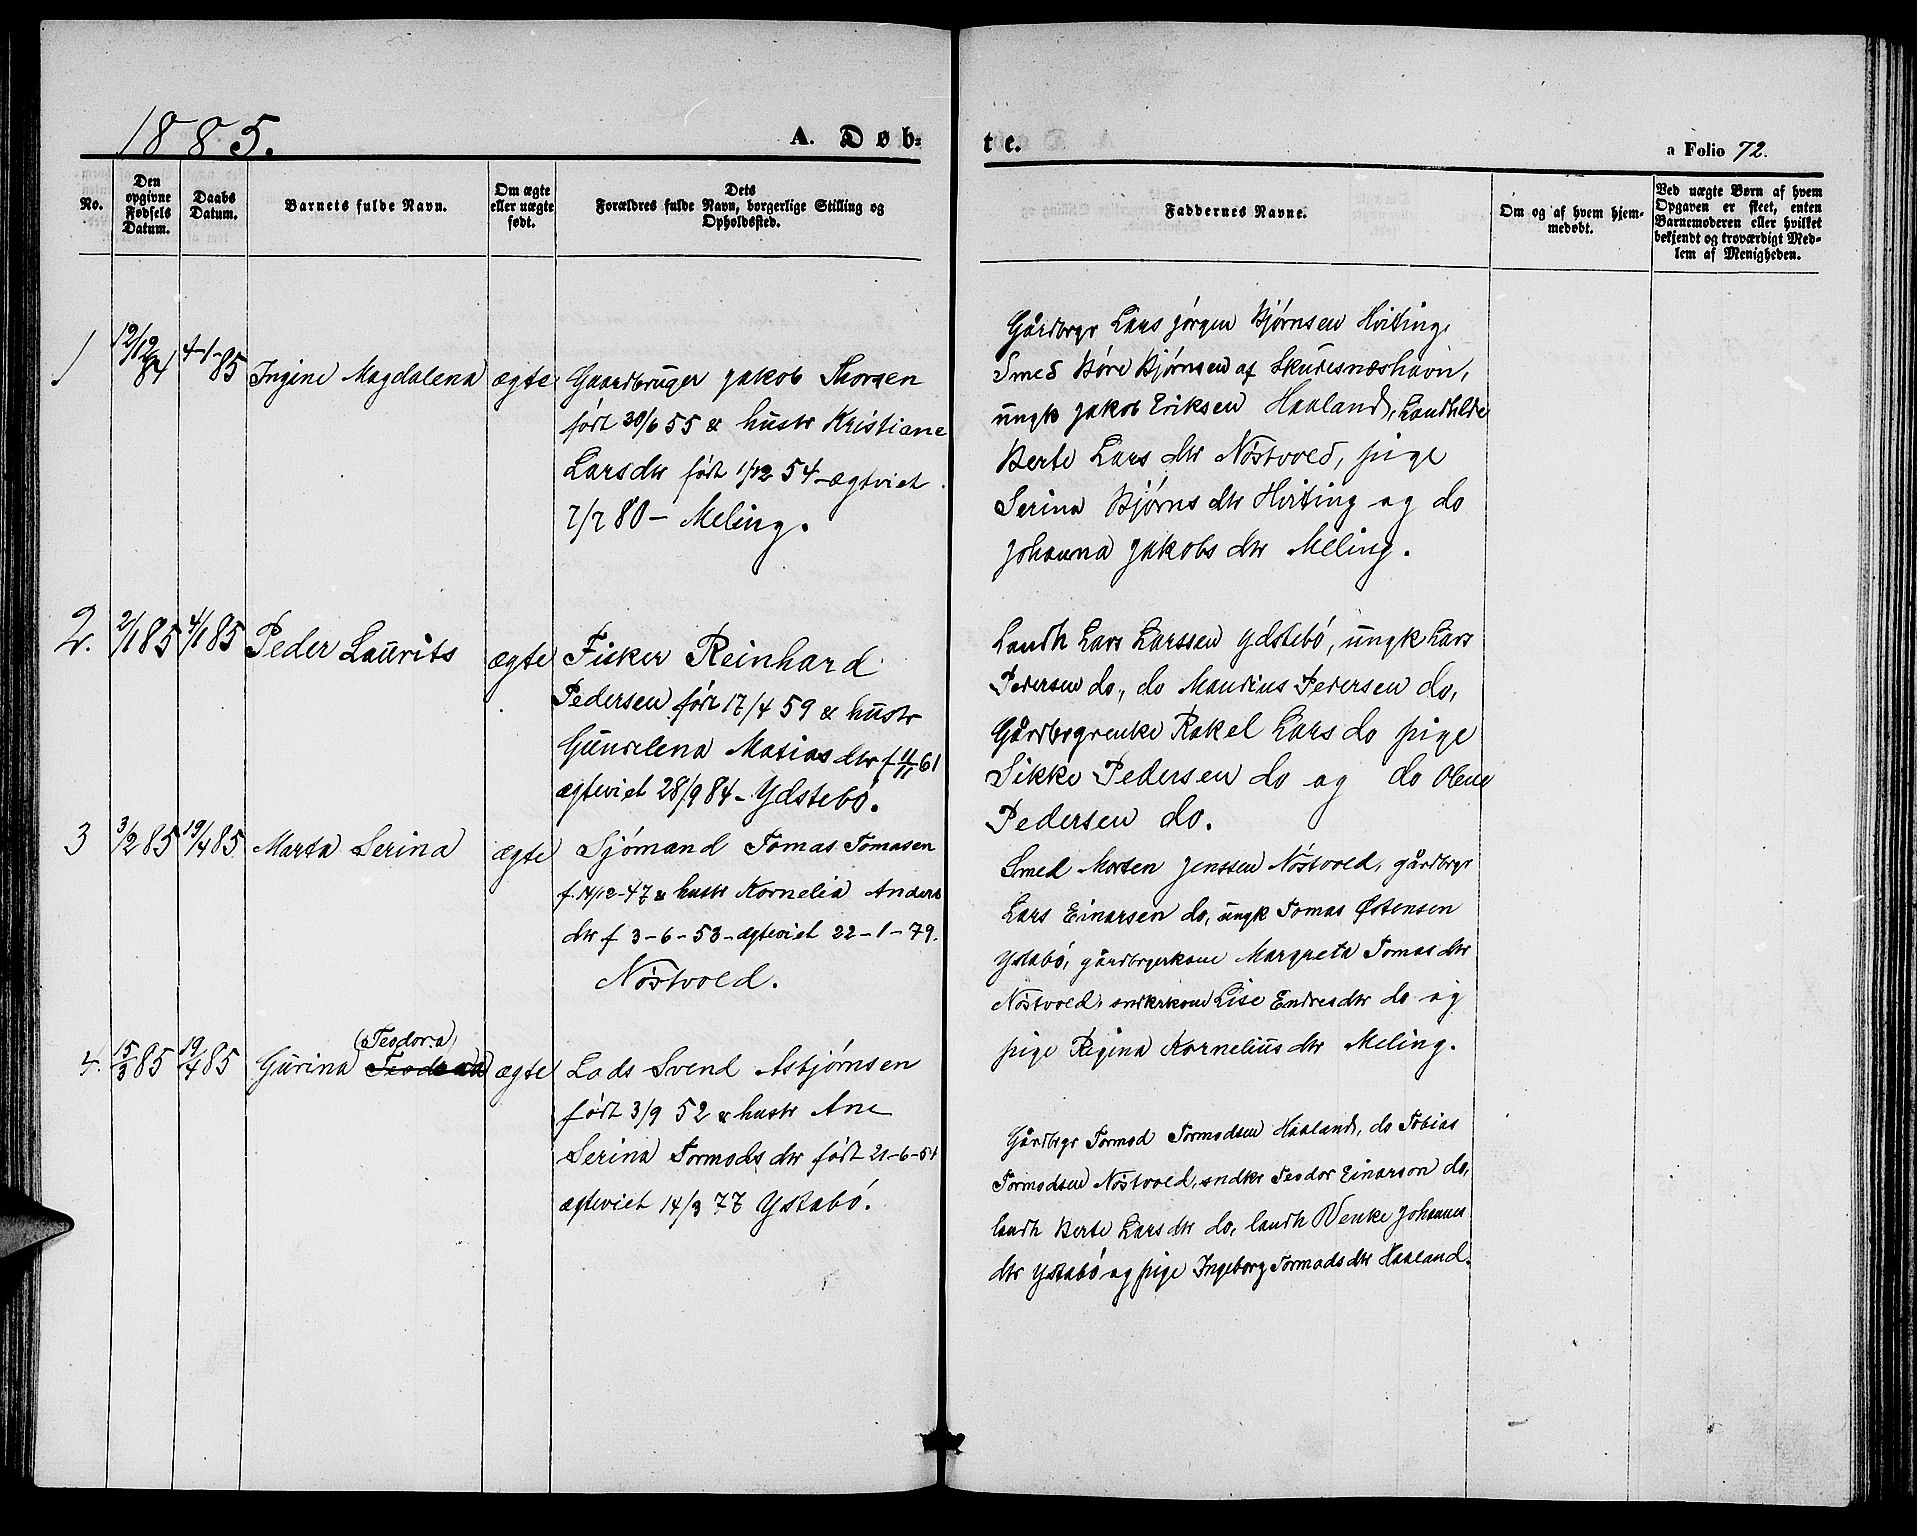 1885.
A. Døb=
te.
a Folio 72.
No.
Den
opgivne
Fødsels
Datum.
Daabs
Datum.
Barnets fulde Navn.
Om ægte
eller uægte
født.
Dets
Forældres fulde Navn, borgerlige Stilling og
Opholdssted.
Faddernes Navne.
Om og af hvem hjem-
medøbt.
Ved uægte Børn af hvem
Opgaven er skeet, enten
Barnemoderen eller hvilket
bekjendt og troværdigt Med-
lem af Menigheden.
1 12/12 84 4-1-85 Ingine Magdalena ægte Gaardbruger Jakob Thorsen
født 30/6 55 & hustr Kristiane
Larsdtr født 1/12 54 - ægtviet
7/7 80 - Meling.
Gårdbrgr Lars Jörgen Bjørnsen Hviting,
Smed Børe Bjørnsen af Skudesnæshavn,
ungk Jakob Eriksen Haaland, Landhilde
Berte Lars dtr Nöstvold, pige
Serina Bjørns dtr Hviting og do
Johanna Jakobs dtr Meling.
2. 2/1 85 4/1 85 Peder Laurits ægte Fisker Reinhard
Pedersen født 17/4 59 & hustr
Gundelena Matias dtr f 11/11 61
ægteviet 28/9 84 - Ydstebö.
Landh Lars Larssen Ydstebö, ungk Lars
Pedersen do, do Mauritius Pedersen do,
Gårdbrgrenke Rakel Lars do pige
Sikke Pedersen do og do Olene
Pedersen do.
3 3/2 85 19/4 85 Marta Serina ægte Sjömand Tomas Tomasen
f. 14/12-47 & hustr Kornelia Anders
dtr f 3-6-53 - ægteviet 22-1-79.
Nöstvold.
Smed Morten Jenssen Nöstvold, gårdbrgr
Lars Einarsen do, ungk Tomas Østensen
Ystabö, gårdbrgerkone Margreta Tomas dtr
Nöstvold, sndkrkone Lise Endresdtr do og
pige Regina Kornelius dtr Meling.
4. 15/3 85 19/4 85 Gurina (Teodora) ægte Lods Svend Asbjørnsen
født 3/9 52 & hustr Ane
Serina Tormods dtr født 21-6-51
ægteviet 14/3 77 Ystabö.
Gårdbrgr Tormod Tormodsen Haaland, do Tobias
Tormodsen Nöstvold, sndkr Teodor Einarson do,
landh Berte Lars dtr do, landh Wenke Johannes
dtr Ystabö og pige Ingeborg Tormods dtr Haaland.